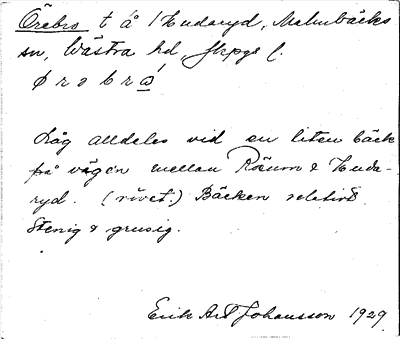 Örebro t å / Hudaryd, Malmbäcks
sn, Västra hd, Jkpgs l.
ø r ə b r ò̲
Låg alldeles vid en liten bäck
på vägen mellan Rösum & Huda-
ryd. (rivet.) Bäcken relativt
Stenig & grusig.
Erik Art Johansson 1929